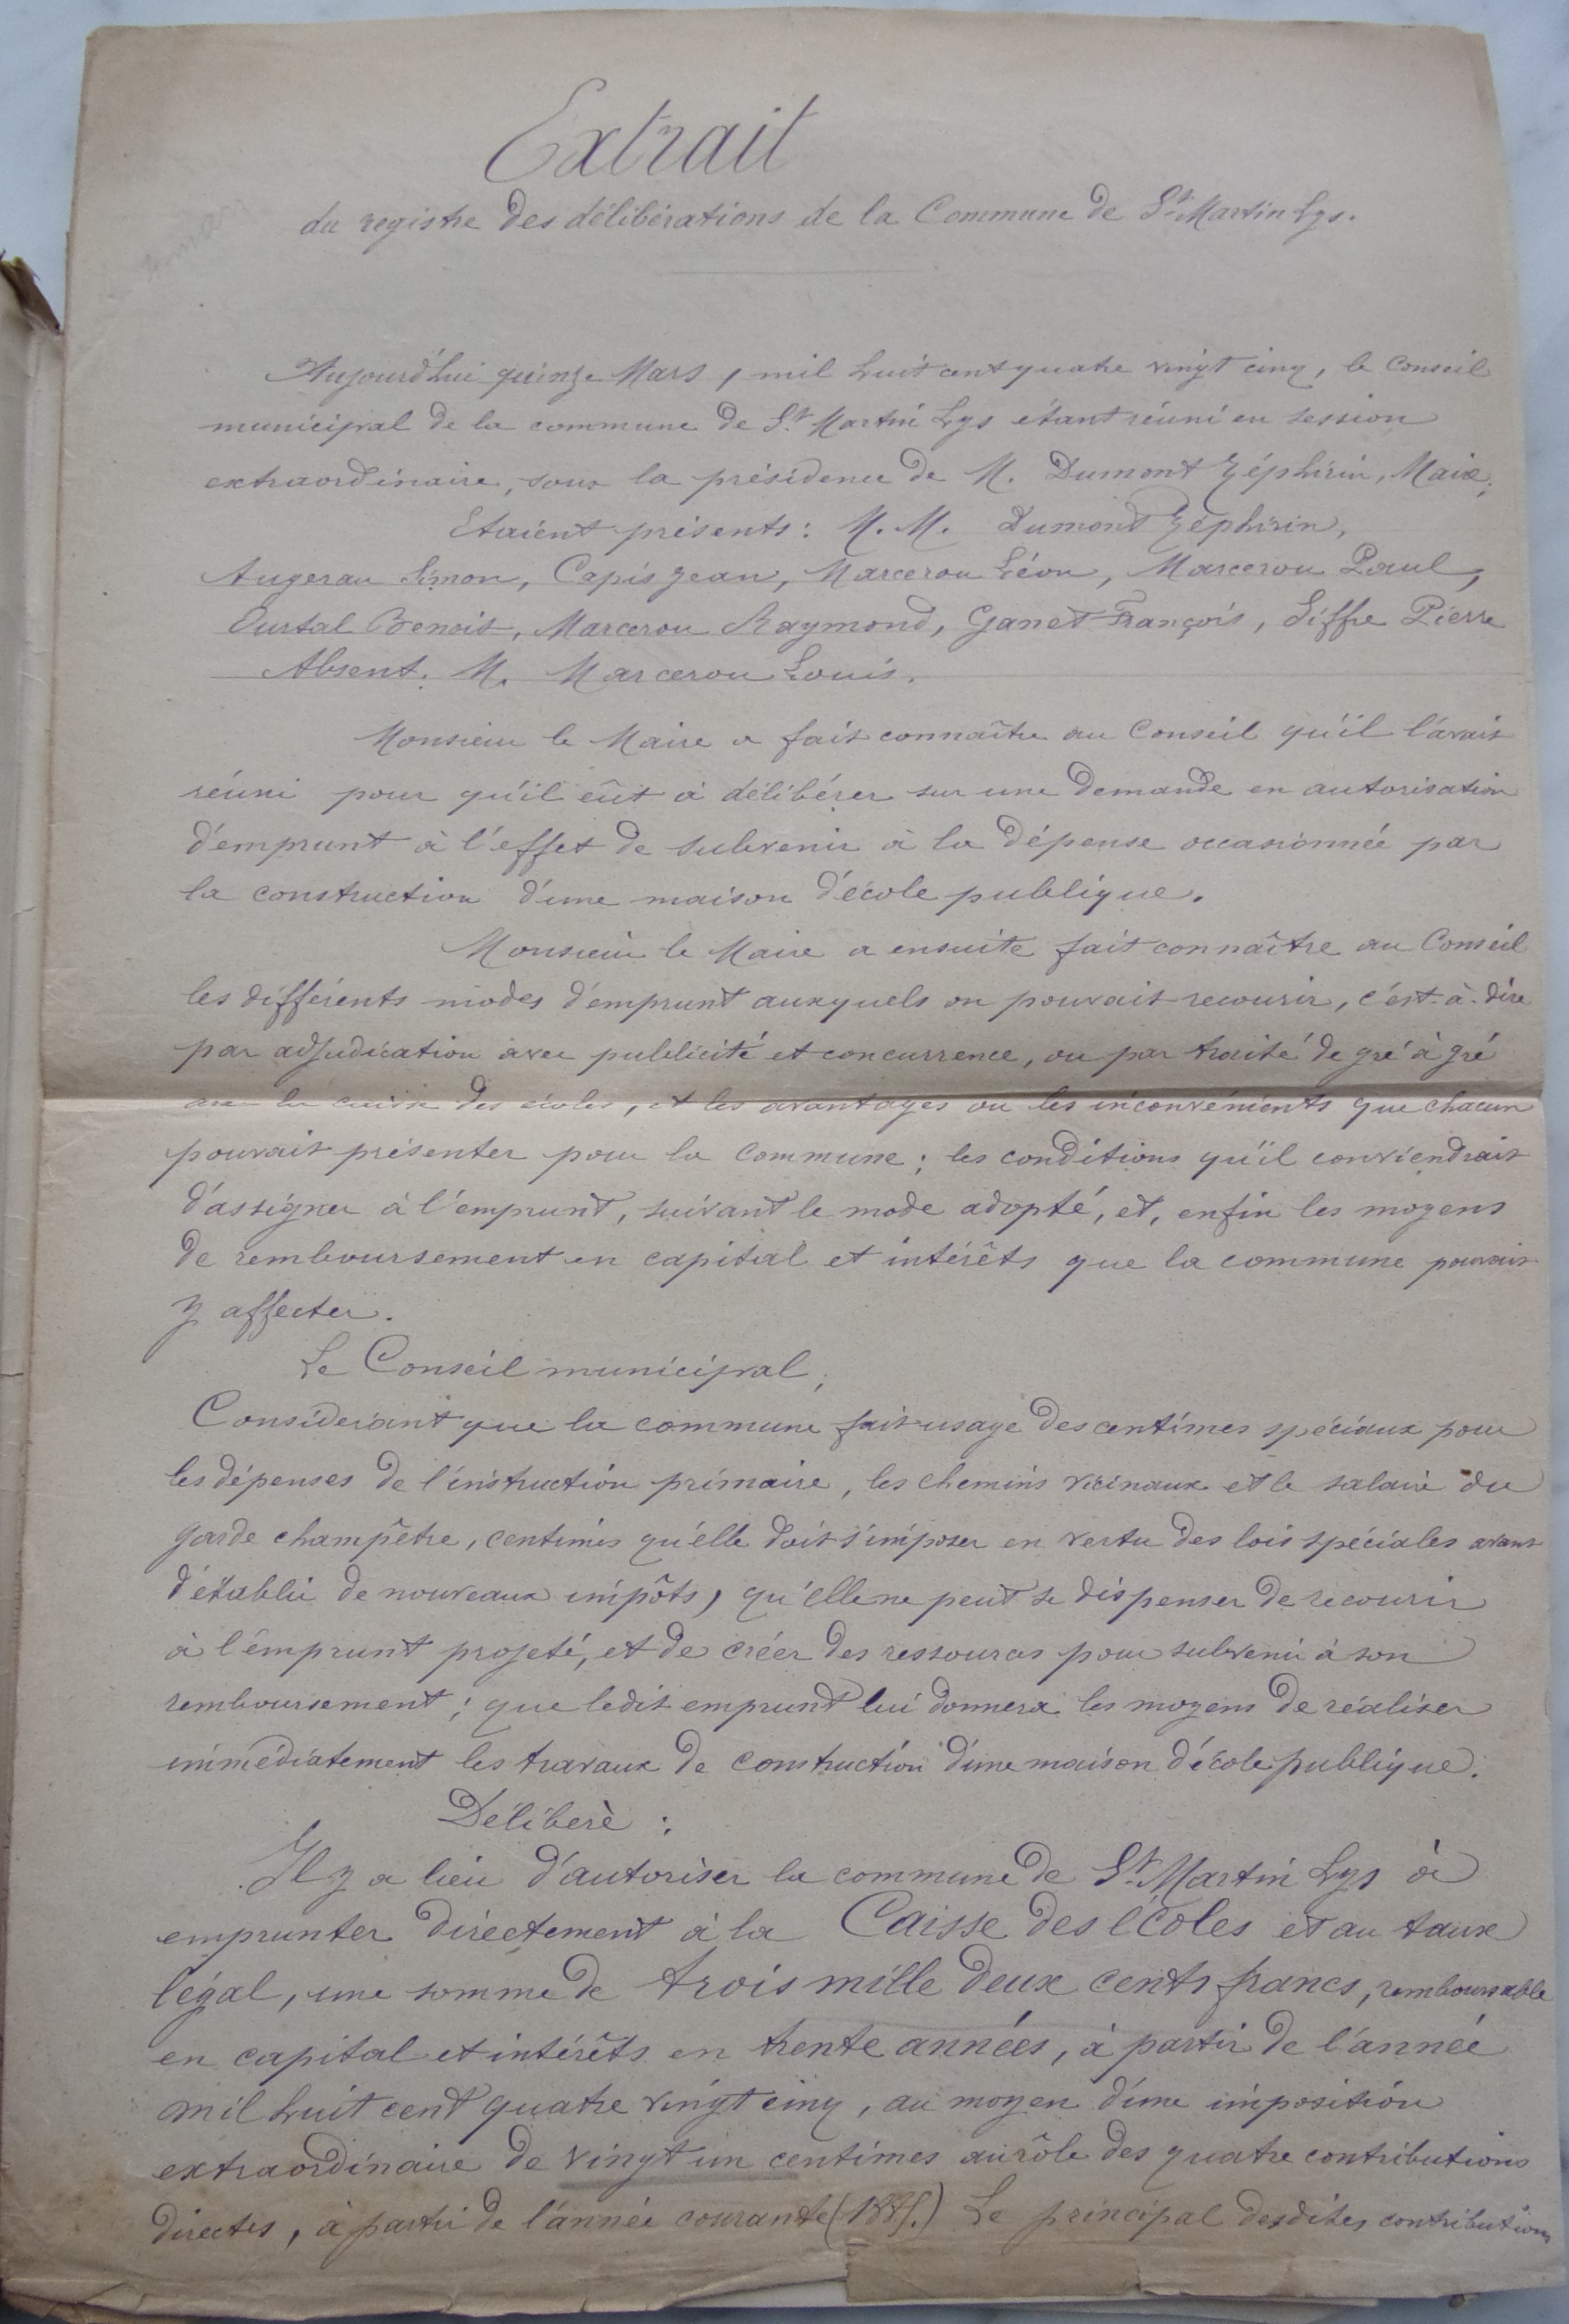 Extrait
du registre des délibérations de la Commune de St Martin Lys.
Aujourd'hui quinze Mars, mil huit cent quatre vingt cinq, le Conseil
municipal de la commune de St Martin Lys étant réuni en session
extraordinaire, sous la présidence de M. Dumont Zéphirin, Maire;
Etaient présents: M.M. Dumont Zéphirin,
Augerau Simon, Capis Jean, Marcerou Léon, Marcerou Paul,
Ourtal Benoit, Marcerou Raymond, Ganet François, Siffre Pierre
Absent. M. Marcerou Louis.
Monsieur le Maire a fait connaître au Conseil qu'il l'avait
réuni pour qu'il eût à délibérer sur une demande en autorisation
d'emprunt à l'effet de subvenir à la dépense occasionnée par
la construction d'une maison d'école publique.
Monsieur le Maire a ensuite fait connaître au Conseil
les différents modes d'emprunt auxquels on pouvait recourir, c'est-à-dire
par adjudication avec publicité et concurrence, ou par traité de gré à gré
avec la caisse des écoles, et les avantages ou les inconvénients que chacun
pouvait présenter pour la commune; les conditions qu'il conviendrait
d'assigner à l'emprunt, suivant le mode adopté, et, enfin les moyens
de remboursement en capital et intérêts que la commune pouvait
y affecter.
Le Conseil municipal;
Considérant que la commune fait usage des centimes spéciaux pour
les dépenses de l'instruction primaire, les chemins vicinaux et le salaire du
garde champêtre, centimes qu'elle doit s'imposer en vertu des lois spéciales avant
d'établir de nouveaux impôts, qu'elle ne peut se dispenser de recourir
à l'emprunt projeté, et de créer des ressources pour subvenir à son
remboursement; que ledit emprunt lui donnera les moyens de réaliser
immédiatement les travaux de construction d'une maison d'école publique.
Délibère:
Il y a lieu d'autoriser la commune de St Martin Lys à
emprunter directement à la Caisse des écoles et au taux
légal, une somme de trois mille deux cents francs, remboursable
en capital et intérêts en trente années, à partir de l'année
mil huit cent quatre vingt cinq, au moyen d'une imposition
extraordinaire de vingt un centimes au rôle des quatre contributions
directes, à partir de l'année courante (1885.) Le principal desdites contributions